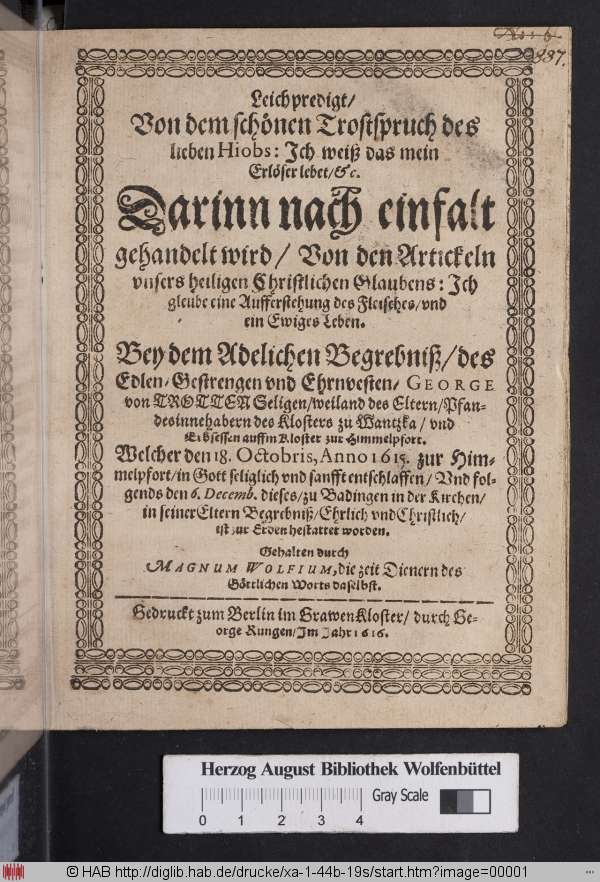 887.
Leichpredigt/
Von dem schönen Trostspruch des
lieben Hiobs: Ich weiß das mein
Erlöser lebet/&c.
Darinn nach einfalt
gehandelt wird/ Von den Artickeln
vnsers heiligen Christlichen Glaubens: Ich
gleube eine Aufferstehung des Fleisches/vnd
ein Ewiges Leben.
Bey dem Adelichen Begrebniß/des
Edlen/Gestrengen vnd Ehrnvesten/ GEORGE
von TROTTEN Seligen/weiland des Eltern/Pfan-
desinnehabern des Klosters zu Wantzka/ vnd
Erbsessen auffm Kloster zur Himmelpfort.
Welcher den 18. Octobris, Anno 1615. zur Him-
melpfort/in Gott seliglich vnd sanfft entschlaffen/ Vnd fol-
gends den 6. Decemb. dieses/zu Badingen in der Kirchen/
in seiner Eltern Begrebniß/Ehrlich vnd Christlich/
ist zur Erden bestattet worden.
Gehalten durch
MAGNUM WOLFIUM, die zeit Dienern des
Göttlichen Worts daselbst.
Gedruckt zum Berlin im Grawen Kloster/ durch Ge-
orge Rungen/Im Jahr 1616.
Herzog August Bibliothek Wolfenbüttel
0 1 2 3 4 Gray Scale
© HAB http://diglib.hab.de/drucke/xa-1-44b-19s/start.htm?image=00001